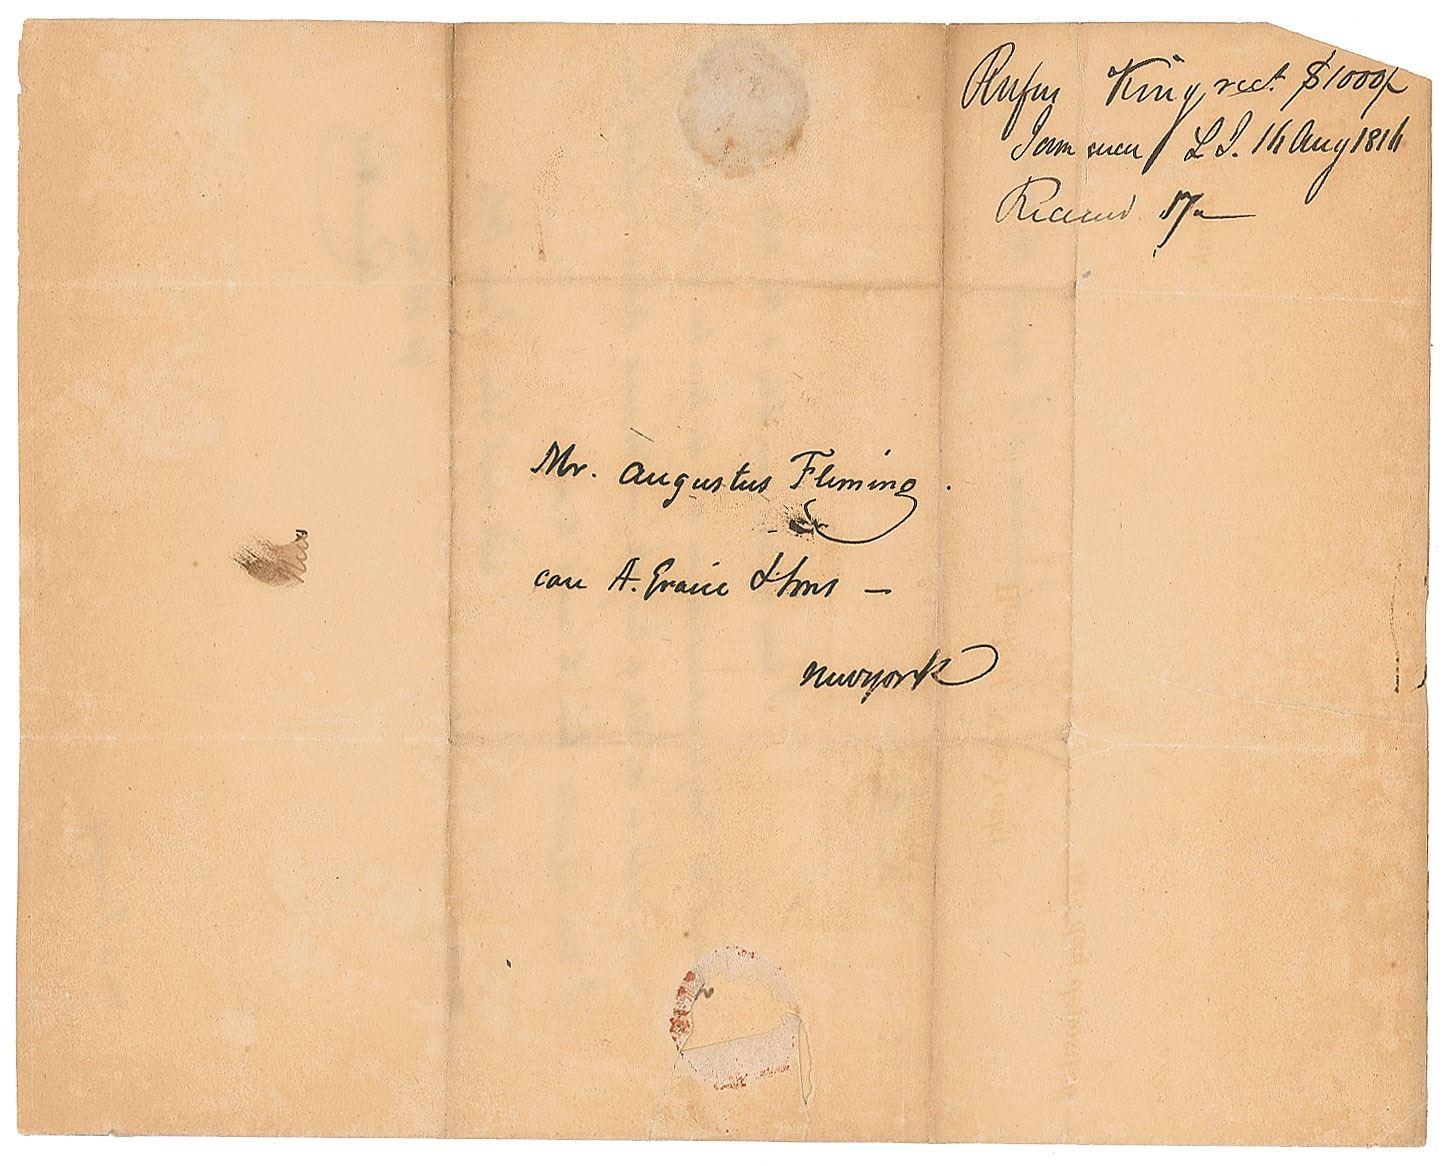 Rufus King rect $1000/
Jamaica L I. 14 Aug 1814
Received 17"
Mr. Augustus Fleming.
care A. Gracie & Sons —
Newyork